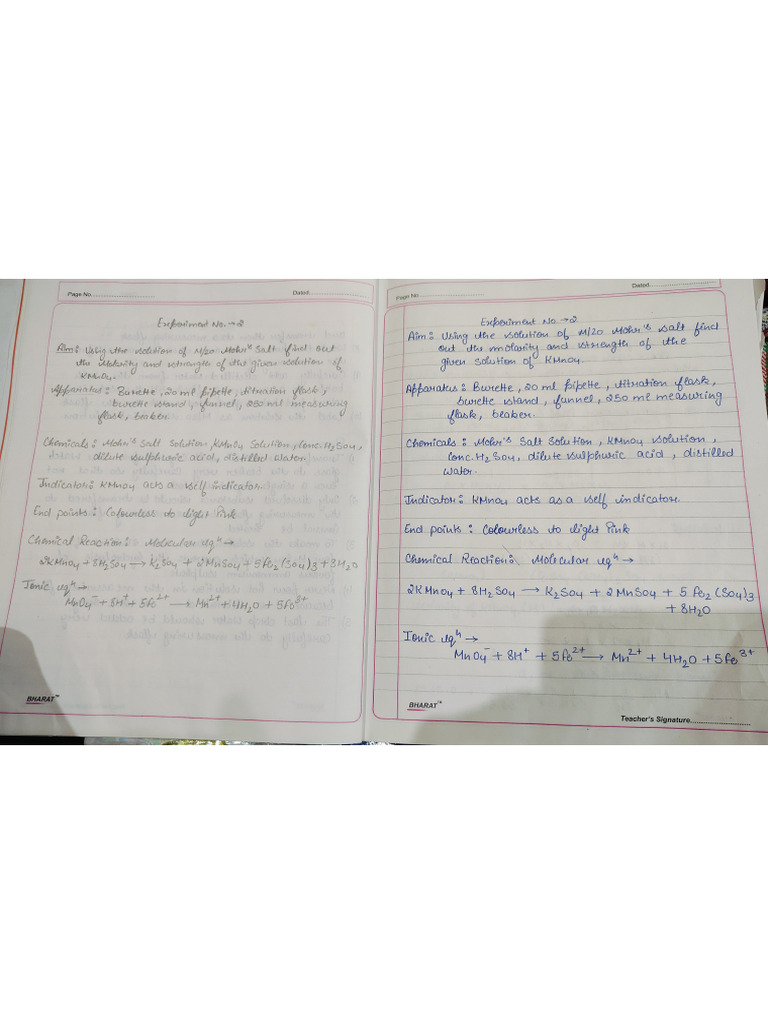 Page No.
Dated
Experiment No. → 2
Aim: Using the solution of M/20 Mohr's Salt find out
the Molarity and strength of the given solution of
KMnO4.
Apparatus: Burette, 20 ml pipette, titration flask,
burette stand, funnel, 250 ml measuring
flask, beaker.
Chemicals: Mohr's Salt Solution, KMnO4 Solution, conc. H2SO4,
dilute sulphuric acid, distilled water.
Indicator: KMnO4 acts a self indicator.
End points: Colourless to light Pink
Chemical Reaction: Molecular eqn →
2KMnO4 + 8H2SO4 → K2SO4 + 2MnSO4 + 5Fe2(SO4)3 + 8H2O
Ionic eqn →
MnO4⁻ + 8H⁺ + 5Fe²⁺ → Mn²⁺ + 4H2O + 5Fe³⁺
BHARAT™
Page No.
Dated
Experiment No. → 2
Aim: Using the solution of M/20 Mohr's salt find
out the molarity and strength of the
given solution of KMnO4.
Apparatus: Burette, 20 ml pipette, titration flask,
burette stand, funnel, 250 ml measuring
flask, beaker.
Chemicals: Mohr's Salt Solution, KMnO4 solution,
Conc. H2SO4, dilute sulphuric acid, distilled
water.
Indicator: KMnO4 acts as a self indicator.
End points: Colourless to light Pink
Chemical Reaction: Molecular eqn →
2KMnO4 + 8H2SO4 → K2SO4 + 2MnSO4 + 5Fe2(SO4)3
+ 8H2O
Ionic eqn →
MnO4⁻ + 8H⁺ + 5Fe²⁺ → Mn²⁺ + 4H2O + 5Fe³⁺
BHARAT™
Teacher's Signature